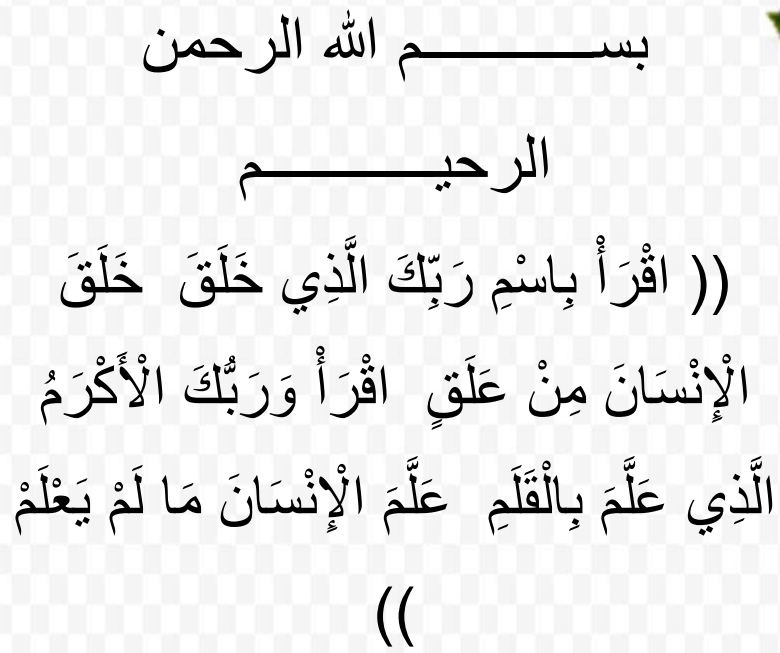 بســـــــــــم الله الرحمن
الرحيـــــــــــم
(( اقْرَأْ بِاسْمِ رَبِّكَ الَّذِي خَلَقَ خَلَقَ
الْإِنْسَانَ مِنْ عَلَقٍ اقْرَأْ وَرَبُّكَ الْأَكْرَمُ
الَّذِي عَلَّمَ بِالْقَلَمِ عَلَّمَ الْإِنْسَانَ مَا لَمْ يَعْلَمْ
))